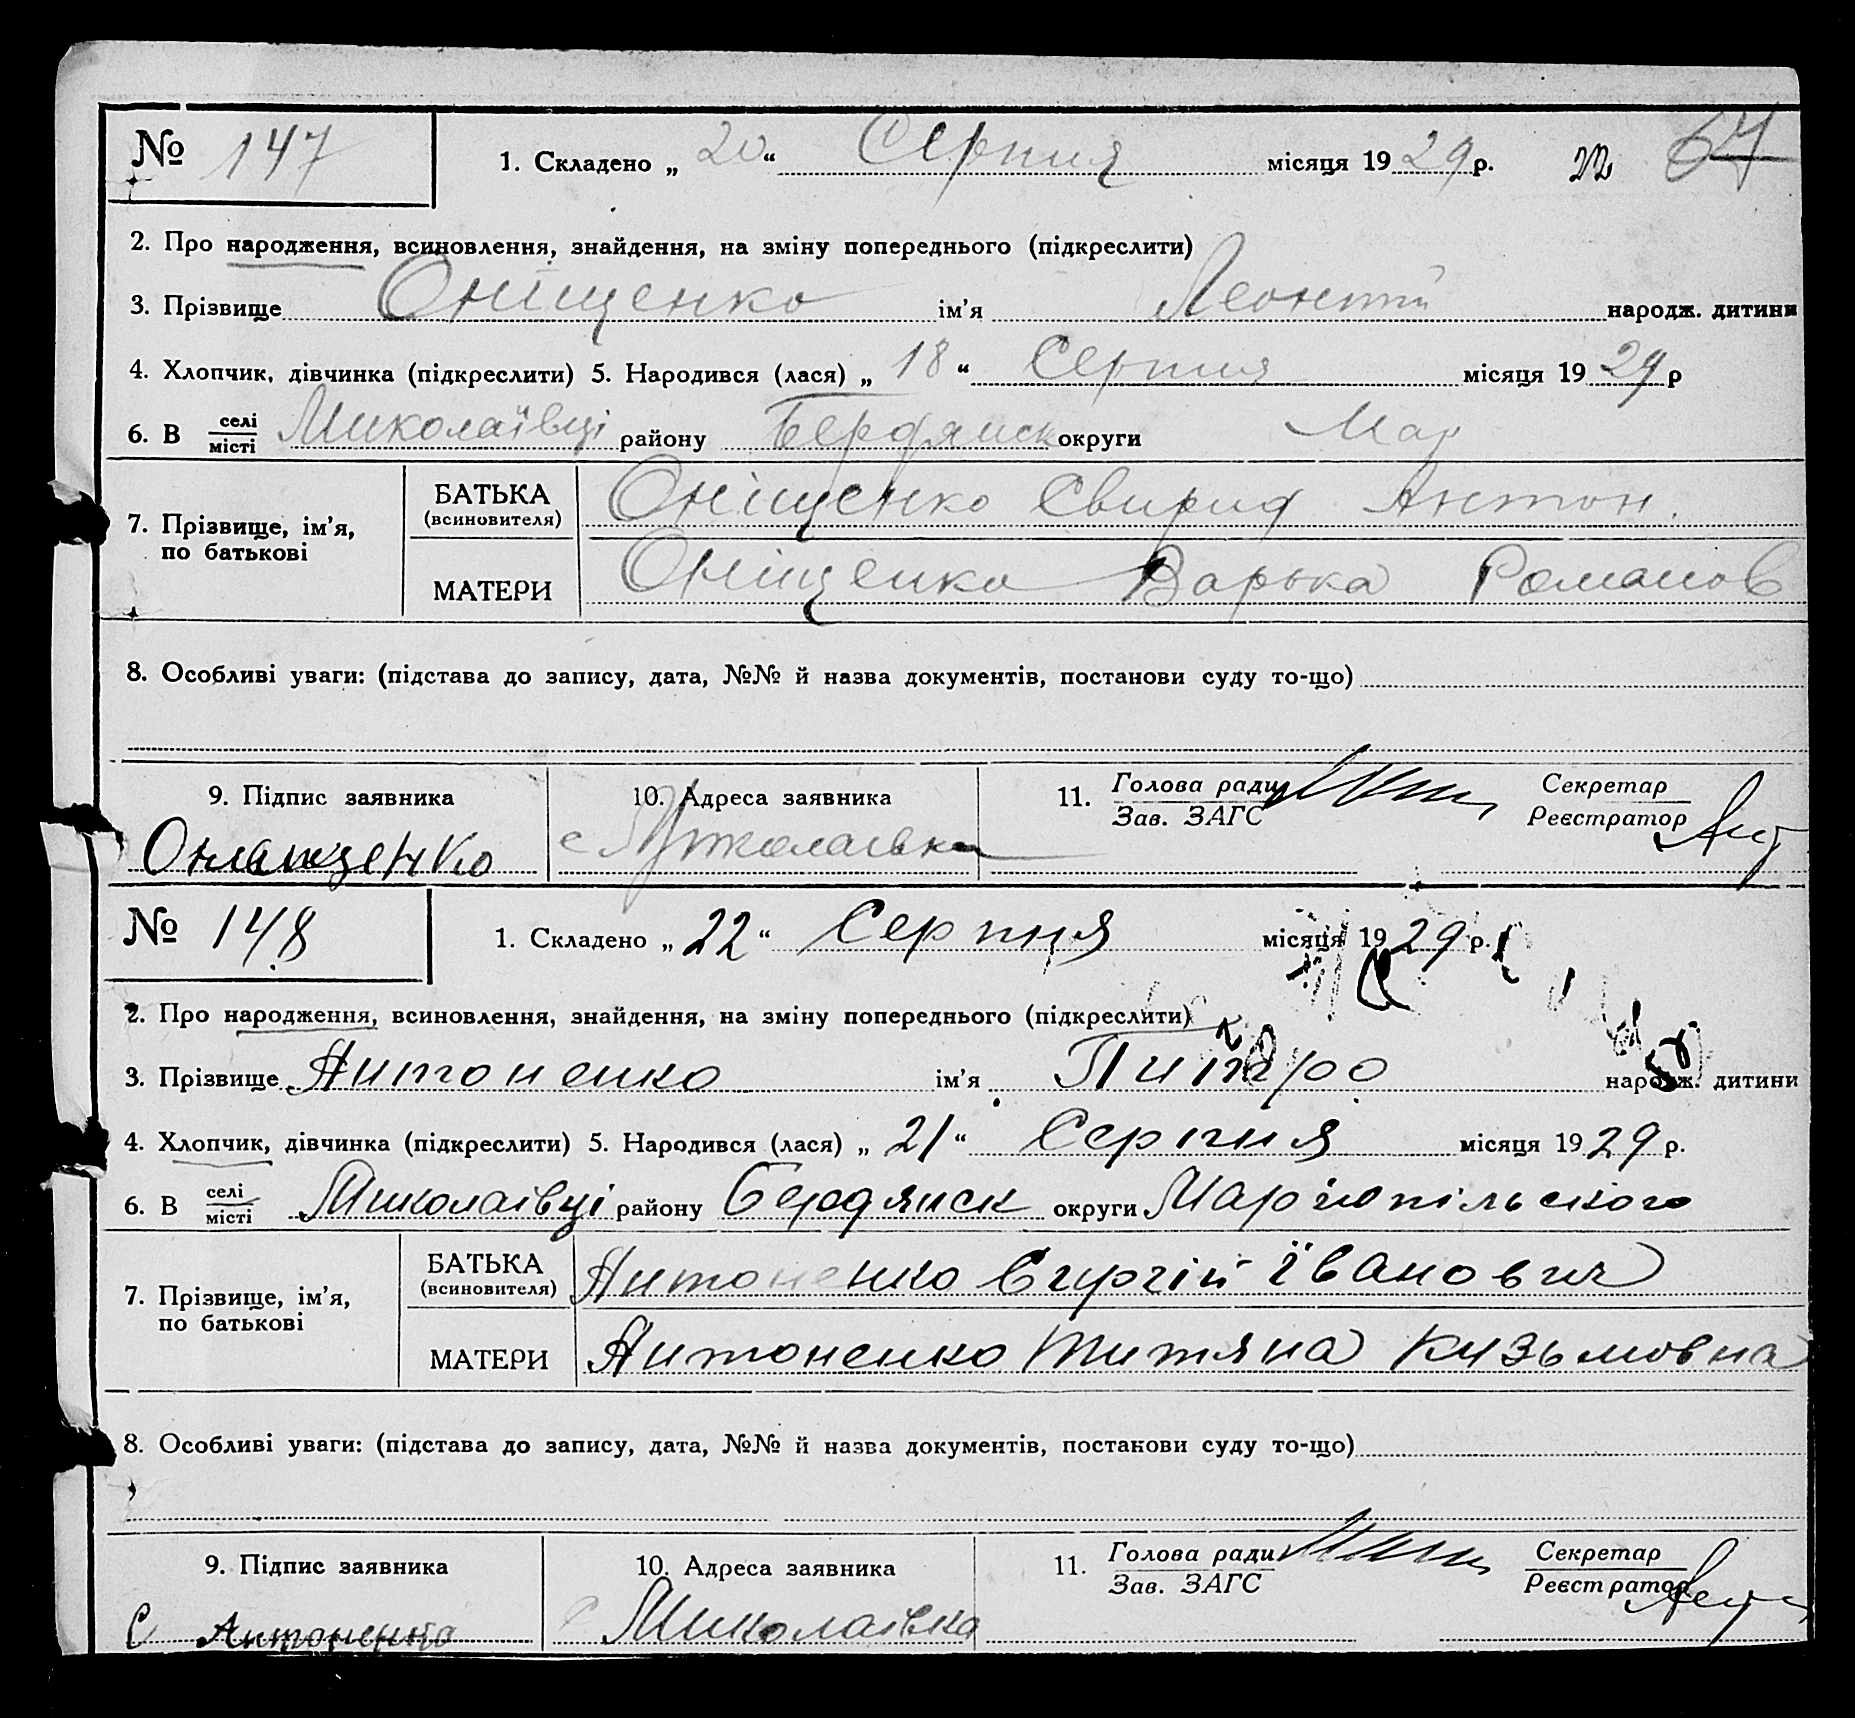 № 147 1. Складено „ 20 “ Серпня місяця 1929 р. 22 64
2. Про народження, всиновлення, знайдення, на зміну попереднього (підкреслити)
3. Прізвище Оніщенко ім'я Леонтій народж. дитини
4. Хлопчик, дівчинка (підкреслити) 5. Народився (лася) „ 18 “ Серпня місяця 1929 р
6. В селі/місті Миколаївці району Бердянск округи Мар
7. Прізвище, ім'я, по батькові
БАТЬКА (всиновителя) Оніщенко Свирид Антон.
МАТЕРИ Оніщенко Варька Романов
8. Особливі уваги: (підстава до запису, дата, №№ й назва документів, постанови суду то-що)
9. Підпис заявника 10. Адреса заявника 11. Голова ради/Зав. ЗАГС Секретар/Реєстратор
с Миколаївка
№ 148 1. Складено „ 22 “ Серпня місяця 1929 р.
2. Про народження, всиновлення, знайдення, на зміну попереднього (підкреслити)
3. Прізвище Антоненко ім'я народж. дитини
4. Хлопчик, дівчинка (підкреслити) 5. Народився (лася) „ 21 “ Серпня місяця 1929 р.
6. В селі/місті Миколаівці району Бердянск округи Маріюпільського
7. Прізвище, ім'я, по батькові
БАТЬКА (всиновителя) Антоненко Сиргій Іванович
МАТЕРИ Антоненко Титяна Кузьмовна
8. Особливі уваги: (підстава до запису, дата, №№ й назва документів, постанови суду то-що)
9. Підпис заявника 10. Адреса заявника 11. Голова ради/Зав. ЗАГС Секретар/Реєстратор
С Антоненко с Миколаівка